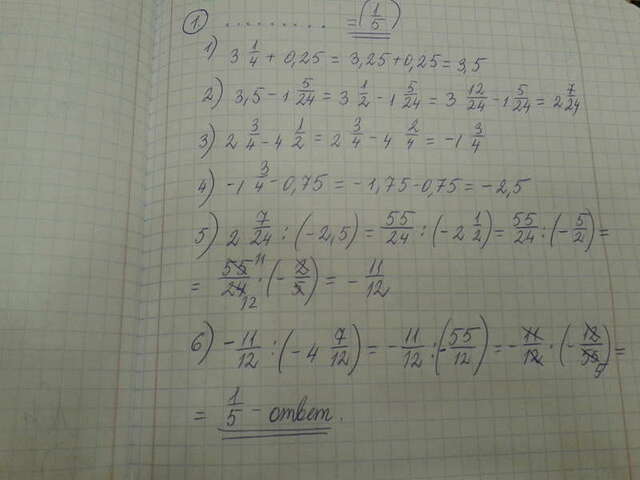 ① ............ = (1/5)
1) 3 1/4 + 0,25 = 3,25 + 0,25 = 3,5
2) 3,5 - 1 5/24 = 3 1/2 - 1 5/24 = 3 12/24 - 1 5/24 = 2 7/24
3) 2 3/4 - 4 1/2 = 2 3/4 - 4 2/4 = -1 3/4
4) -1 3/4 - 0,75 = -1,75 - 0,75 = -2,5
5) 2 7/24 : (-2,5) = 55/24 : (-2 1/2) = 55/24 : (-5/2) =
= 55 11/24 12 · (-2/5) = - 11/12
6) - 11/12 : (-4 7/12) = - 11/12 : (- 55/12) = - 11/12 · (- 12/55 5) =
= 1/5 - ответ.